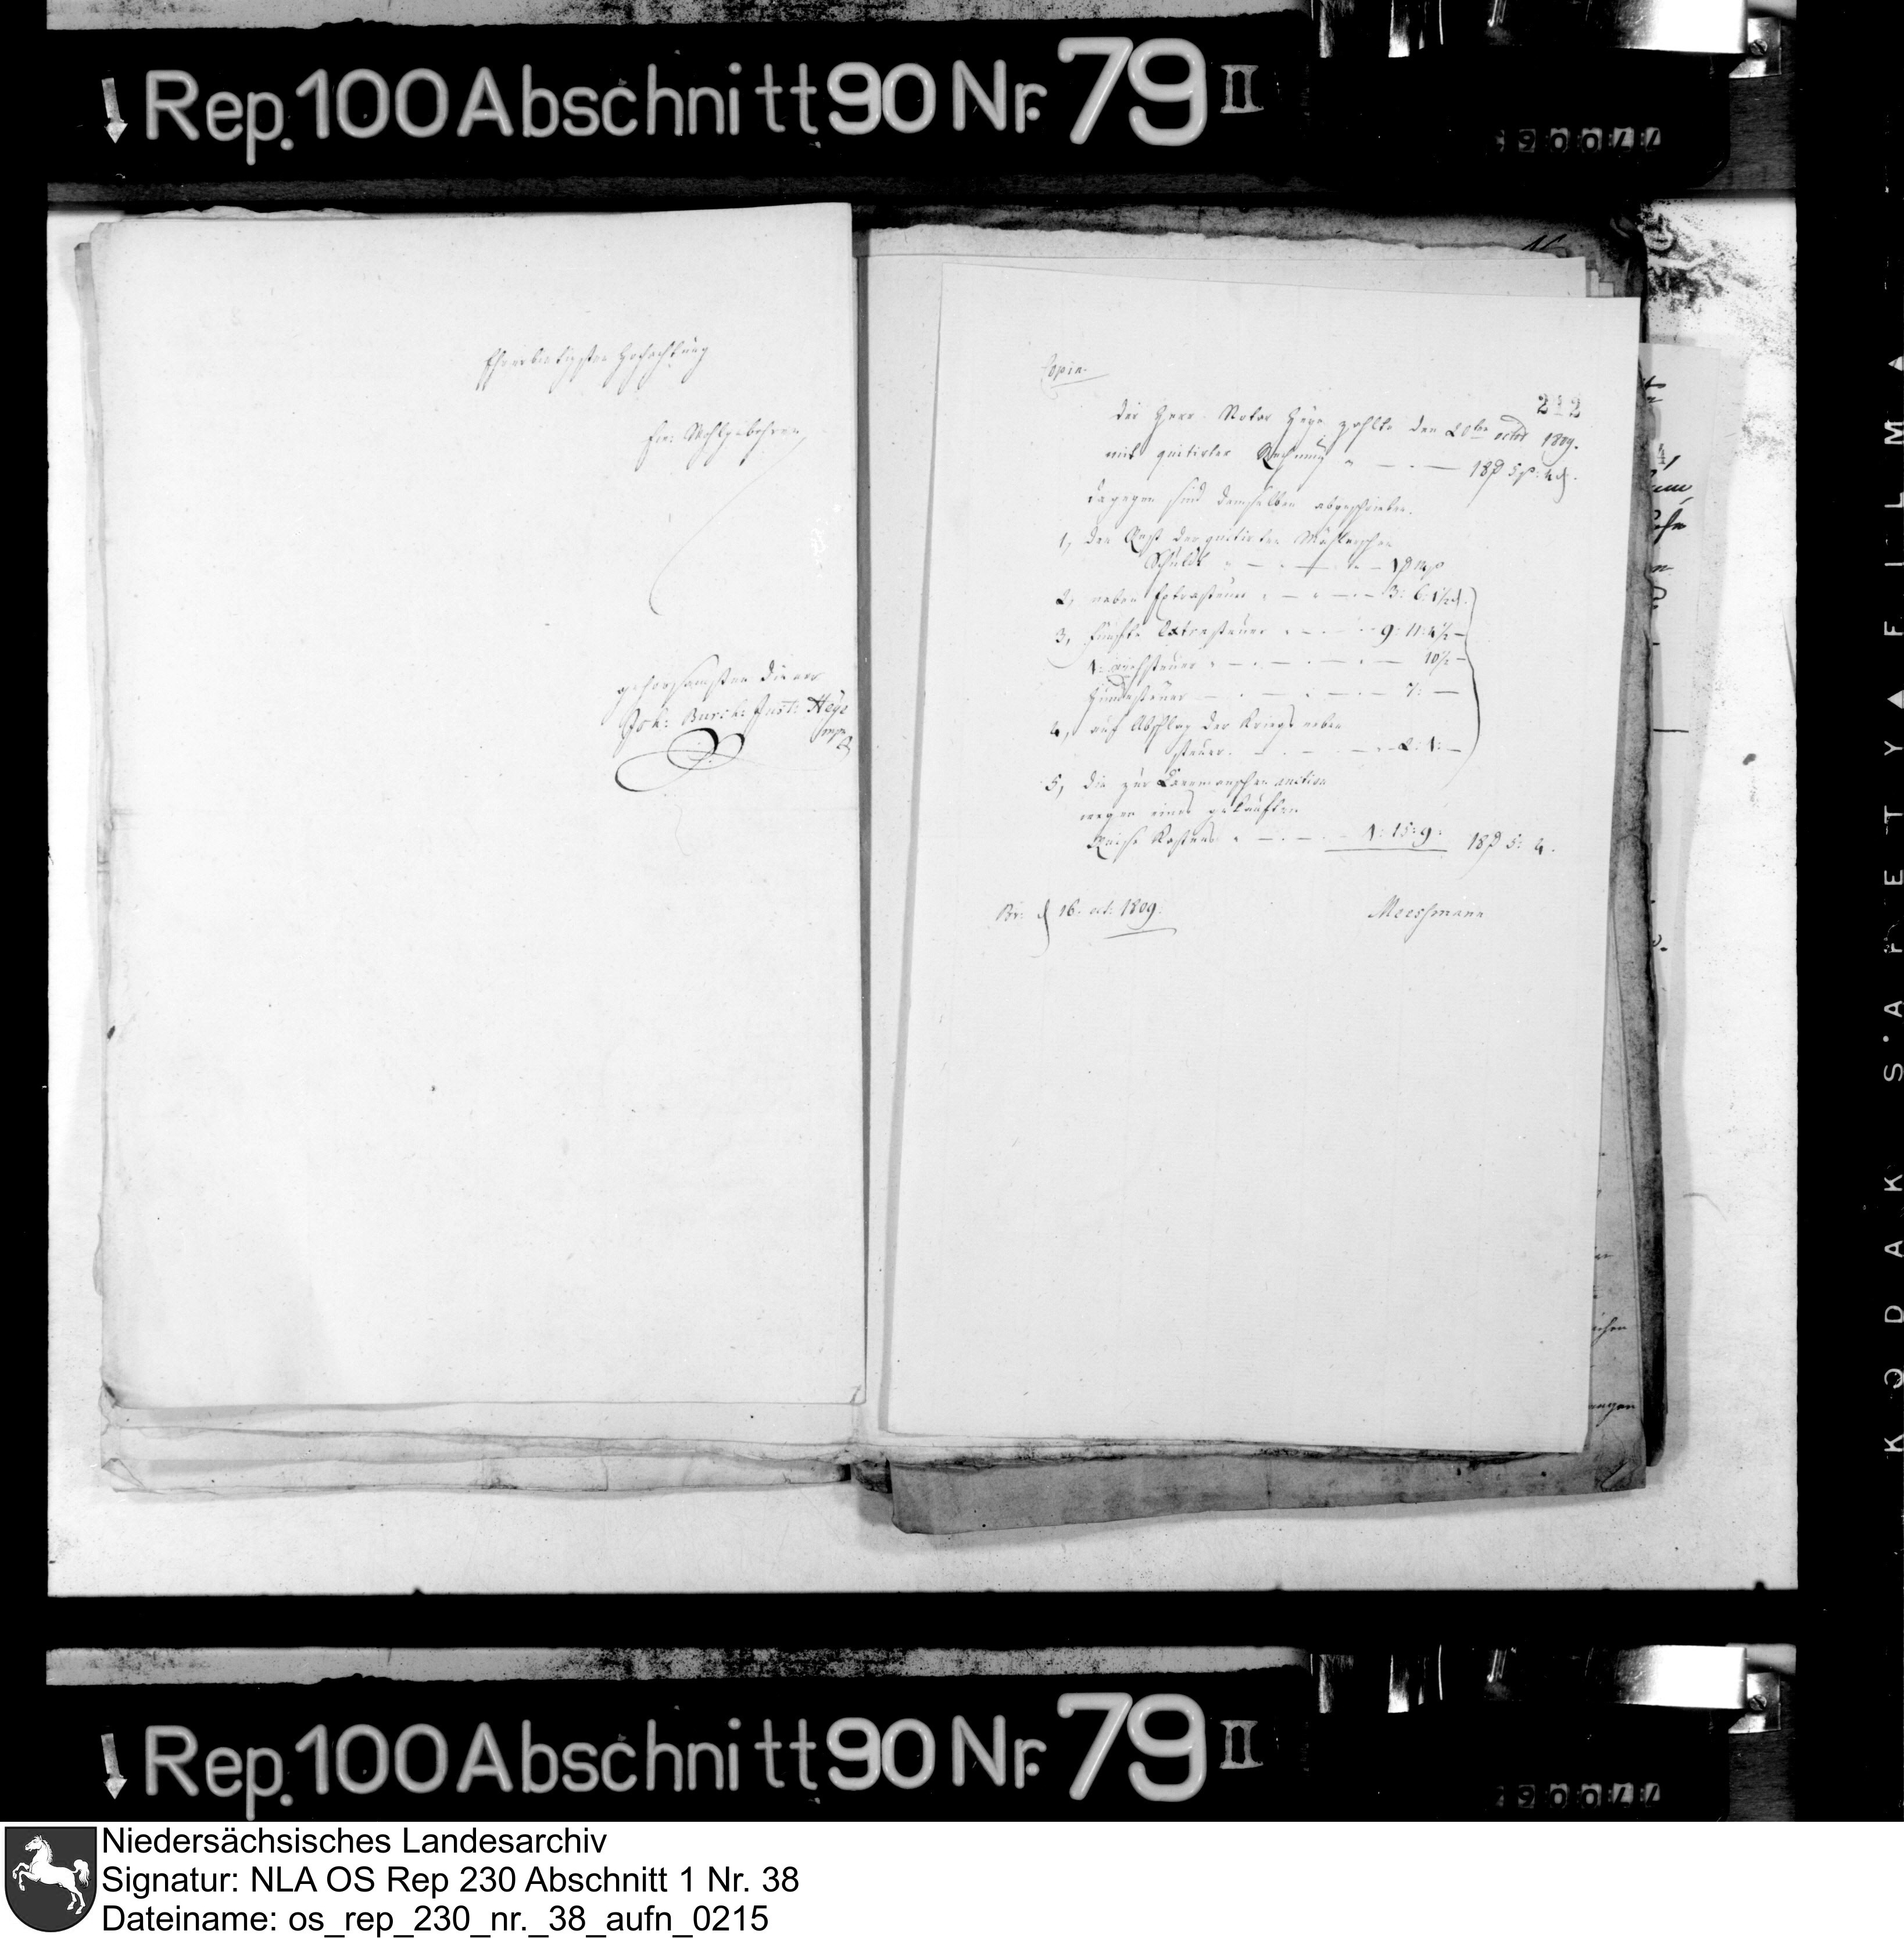 Rep. 100 Abschnitt 90 Nr. 79 II
Ehrerbietigster Hochachtung
Ew: Wohlgebohren
gehorsamster Diener
Joh: Burch: Just: Heye
mpr
Copia.
212
Der Herr Notar Heye zahlte den 20ten octbr 1809.
mit quitirter Rechnung " — · — 18 5 4 d.
dagegen sind demselben abgeschrieben.
1, Der Rest der quitirten
Schuld
2, neben Extrasteuer — 3: 6: 1½ d.
3, fünfte Extrasteuer — 9: 11: 4½ —
— 10½ —
— 7: —
4, auf Abschlag der Kriegs neben
steuer. — 2: 1: —
5, die zur auction
wegen eines gekauften
— 1: 15: 9. 18 5: 4.
Br: d 16. oct: 1809.
Meessmann
Rep. 100 Abschnitt 90 Nr. 79 II
KODAK SAFETY FILM
Niedersächsisches Landesarchiv
Signatur: NLA OS Rep 230 Abschnitt 1 Nr. 38
Dateiname: os_rep_230_nr._38_aufn_0215